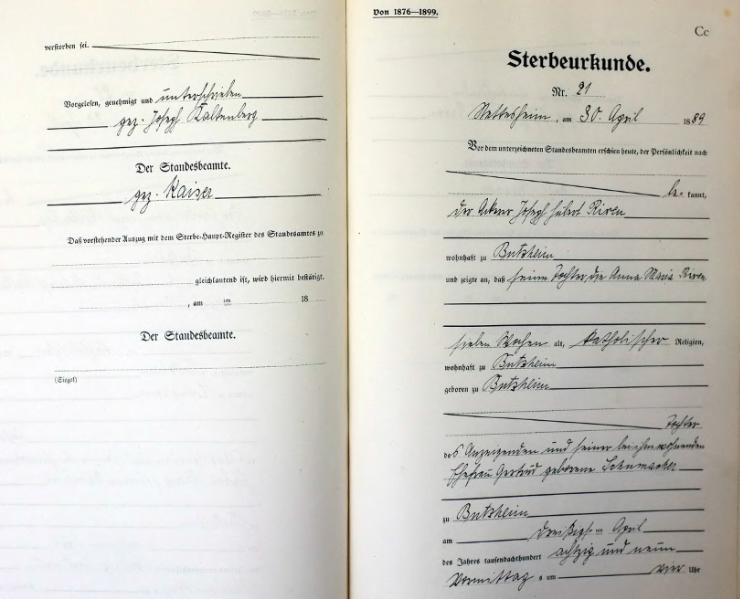 verstorben sei.
Vorgelesen, genehmigt und unterschrieben
gez. Joseph Kaltenberg
Der Standesbeamte.
gez. Kaiser
Daß vorstehender Auszug mit dem Sterbe-Haupt-Register des Standesamtes zu
gleichlautend ist, wird hiermit bestätigt.
, am ten 18
Der Standesbeamte.
(Siegel)
Von 1876—1899.
Cc
Sterbeurkunde.
Nr. 21
Nettesheim, am 30. April 1889
Vor dem unterzeichneten Standesbeamten erschien heute, der Persönlichkeit nach
be kannt,
der Ackerer Joseph Hubert Rixen
wohnhaft zu Butzheim
und zeigte an, daß seine Tochter, die Anna Maria Rixen
sieben Wochen alt, katholischer Religion,
wohnhaft zu Butzheim
geboren zu Butzheim
Tochter
des Anzeigenden und seiner bei ihm wohnenden
Ehefrau Gertrud geborene Schumacher
zu Butzheim
am Dreißigsten April
des Jahrs tausendachthundert achtzig und neun
Vormittags um vier Uhr